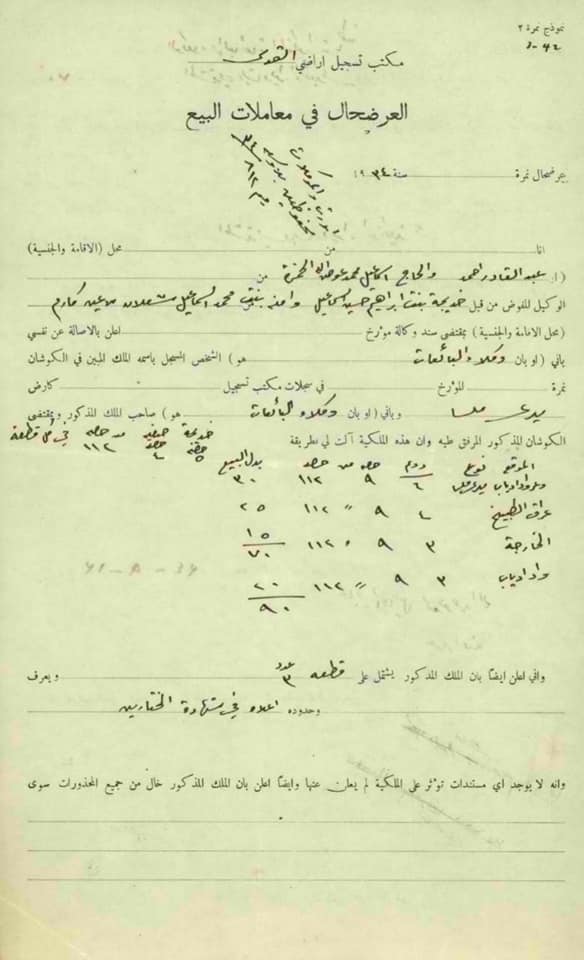 نموذج نمرة ٢
مكتب تسجيل اراضي القدس
العرضحال في معاملات البيع
عرضحال نمرة سنة ١٩٣٤
انا من محل (الاقامة والجنسية)
(او عبد القادر احمد والحاج اسماعيل محمد عوض الله الحمزة من
الوكيل المفوض من قبل خديجة بنت ابراهيم حسين اسماعيل وامنه بنت محمد اسماعيل مشعلان
(محل الاقامة والجنسية) بمقتضى سند وكالة مؤرخ اعلن بالاصالة عن نفسي
باني (او بان وكلاء البائعات هو) الشخص المسجل باسمه الملك المبين في الكوشان
نمرة المؤرخ في سجلات مكتب تسجيل كارض
ميري وباني (او بان وكلاء البائعات هو) صاحب الملك المذكور وبمقتضى
الكوشان المذكور المرفق طيه وان هذه الملكية آلت لي بطريقة
خديجة حصة ٥ حصه ٤ من حصه ١١٢ في كل قطعة
الموقع نوع دونم حصه من حصه بدل البيع
ميري ٤ ٩ ١١٢ ٣٠
عراق الطبيخ ٤ ٩ " ١١٢ ٢٥
الخارجة ٣ ٩ " ١١٢ ١٥
٧٠
واد دياب ٣ ٩ " ١١٢ ٢٠
٩٠
واني اعلن ايضا بان الملك المذكور يشتمل على قطعه عدد ٣ ويعرف
وحدوده اعلاه في شهادة المختارين
وانه لا يوجد اي مستندات تؤثر على الملكية لم يعلن عنها وايضا اعلن بان الملك المذكور خال من جميع المحذورات سوى